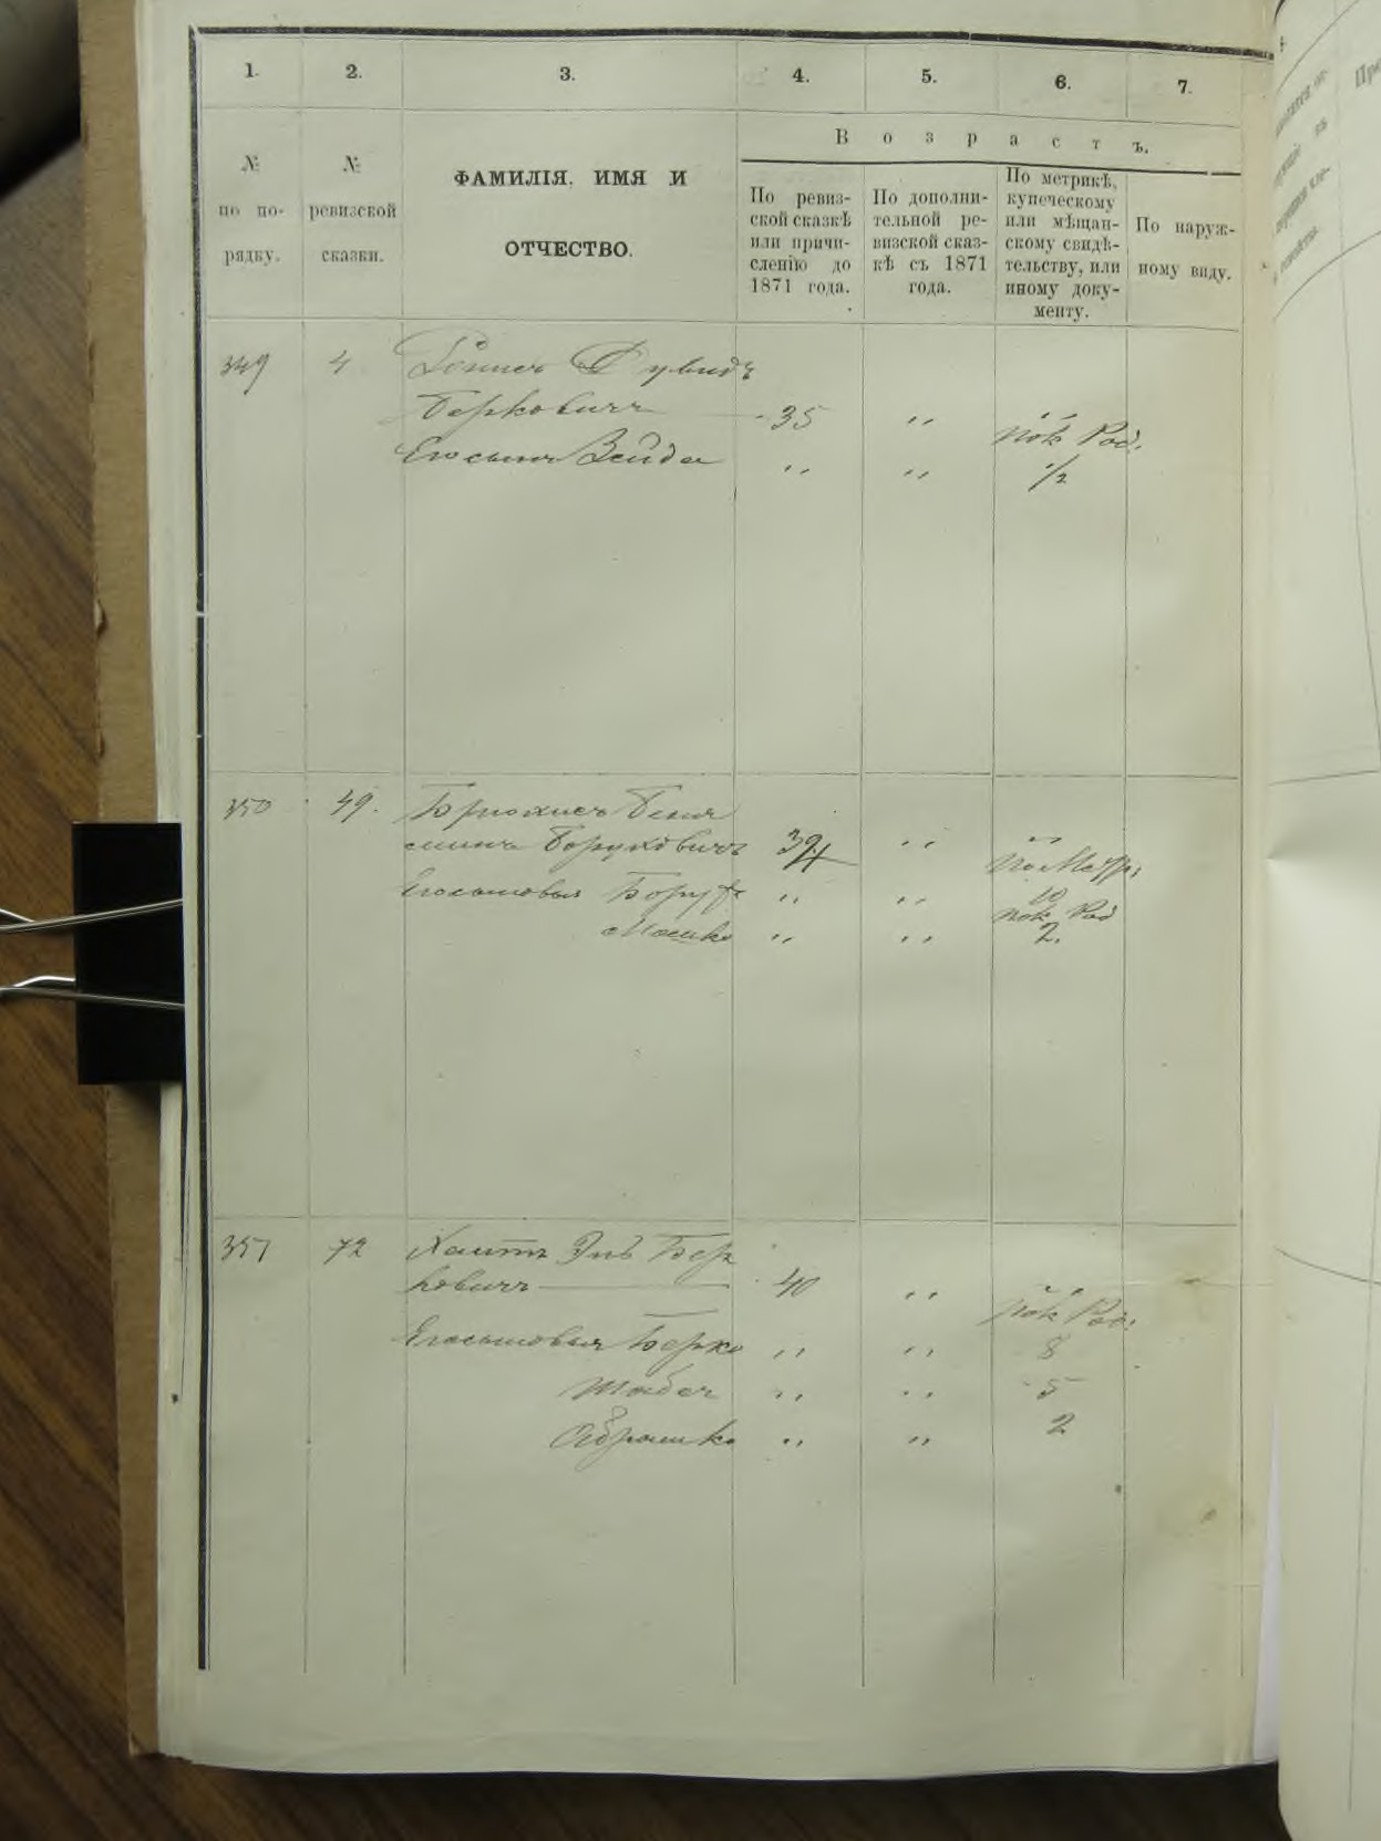 1. 2. 3. 4. 5. 6. 7.
№ по по- рядку.
№ ревизской сказки.
ФАМИЛІЯ, ИМЯ И
ОТЧЕСТВО.
Возрастъ.
По ревиз-
ской сказкѣ
или причи-
сленію до
1871 года.
По дополни-
тельной ре-
визской сказ-
кѣ съ 1871
года.
По метрикѣ,
купеческому
или мѣщан-
скому свидѣ-
тельству, или
иному доку-
менту.
По наруж-
ному виду.
349 4 Дувидъ
Берковичъ 35 " "
пок Род.
Его сынъ Зейда " " 1/2
350 49. Беня
минъ Боруховичъ 34 " "
по Метр:
Его сыновья Борухъ " " 10
пок Род
Мошко " " 2.
351 72 Хаитъ Эль Бер
ковичъ 40 " "
пок Род:
Его сыновья Берко " " 8
" " 5
Абрашко " " 2